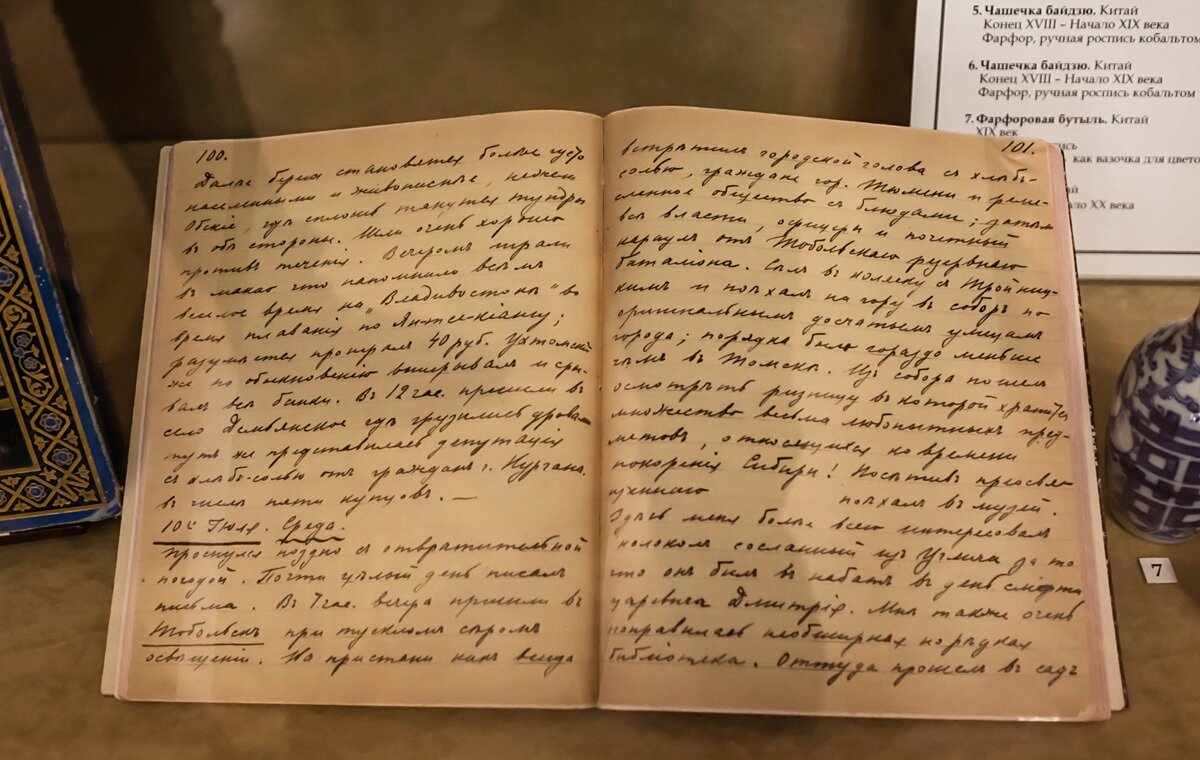 100.
Далѣе берега становятся болѣе густо
населенными и живописнѣе, нежели
Обскіе, гдѣ сплошь тянутся тундры
въ обѣ стороны. Шли очень хорошо
противъ теченія. Вечеромъ играли
въ макао что напомнило всѣмъ
веселое время на „Владивостокѣ" во
время плаванія по Янтсе-Кіангу;
разумѣется проигралъ 40 руб. Ухтомскій
же по обыкновенію выигрывалъ и сры-
валъ всѣ банки. Въ 12 час. пришли въ
село Демьянское гдѣ грузились дровами
тутъ же представилась депутація
съ хлѣбъ-солью отъ гражданъ г. Кургана.
въ числѣ пяти купцовъ. —
10го Іюля. Среда.
Проснулся поздно съ отвратительной
погодой. Почти цѣлый день писалъ
письма. Въ 7 час. вечера пришли въ
Тобольскъ при тускломъ сѣромъ
освѣщеніи. На пристани какъ всегда
101.
встрѣтилъ городской голова съ хлѣбъ-
солью, граждане гор. Тюмени и реме-
сленное общество съ блюдами; затѣмъ
всѣ власти, офицеры и почетный
караулъ отъ Тобольскаго резервнаго
баталіона. Сѣлъ въ коляску съ Тройниц-
кимъ и поѣхалъ на гору въ соборъ по
оригинальнымъ досчатымъ улицамъ
города; порядка было гораздо меньше
чѣмъ въ Томскѣ. Изъ собора пошелъ
осмотрѣть ризницу въ которой хранится
множество весьма любопытныхъ пред-
метовъ, относящихся ко времени
покоренія Сибири! Посѣтивъ преосвя-
щеннаго поѣхалъ въ музей.
Здѣсь меня болѣе всего интересовалъ
колоколъ сосланный изъ Углича за то
что онъ билъ въ набатъ въ день смерти
царевича Дмитрія. Мнѣ также очень
понравилась необширная но рѣдкая
библіотека. Оттуда прошелъ въ садъ
5. Чашечка байдзю. Китай
Конец XVIII – Начало XIX века
Фарфор, ручная роспись кобальтом
6. Чашечка байдзю. Китай
Конец XVIII – Начало XIX века
Фарфор, ручная роспись кобальтом
7. Фарфоровая бутыль. Китай
XIX век
как вазочка для цвето
ло XX века
7